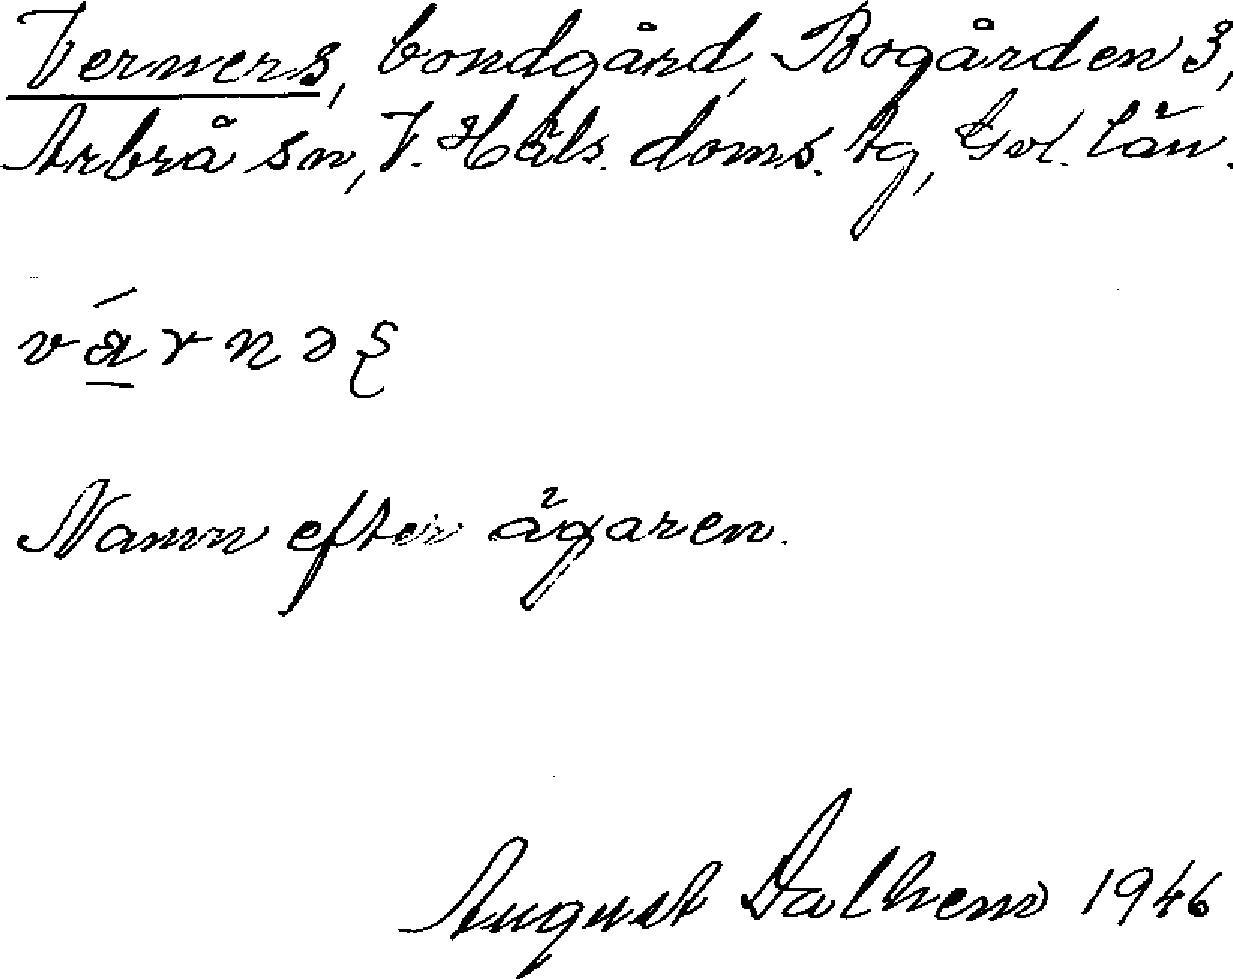 Verners, bondgård, Bogården 3,
Arbrå sn, V. Häls. doms. tg, Gvl. län.
värnəʂ
Namn efter ägaren.
August Dalhem 1946